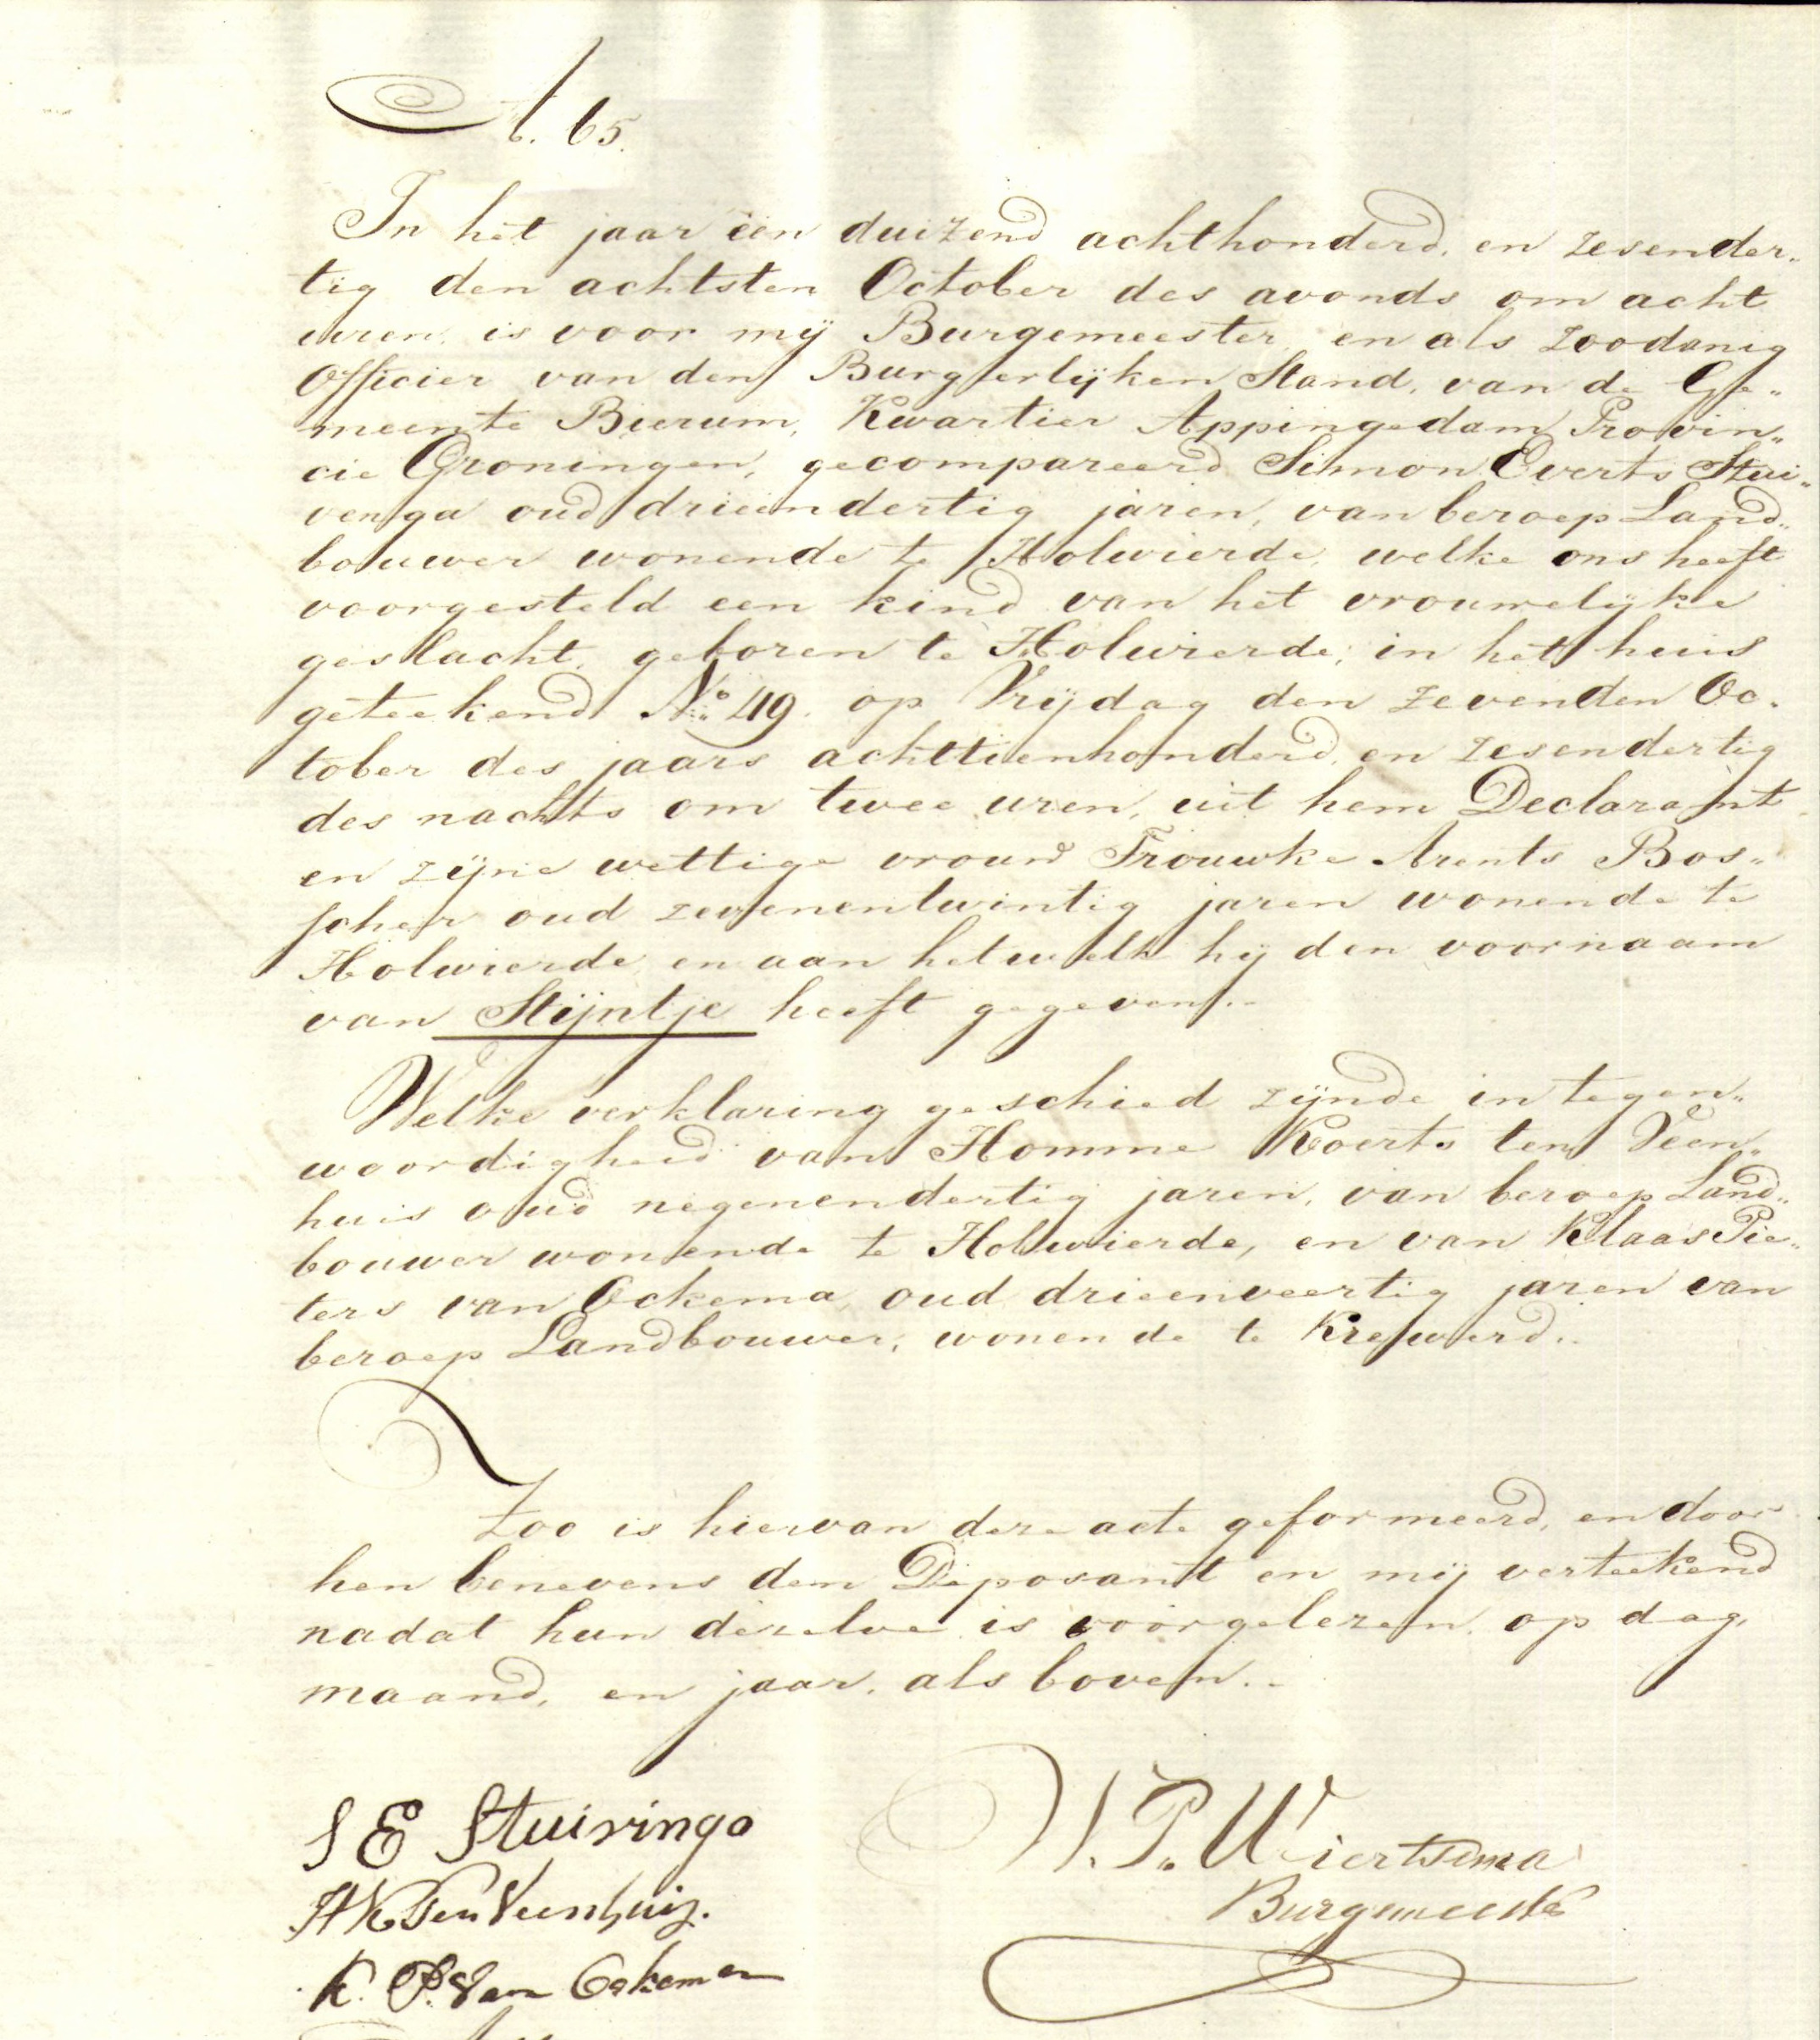 A. 65.
In het jaar een duizend achthonderd, en zesender„
tig den achtsten October des avonds om acht
uren, is voor mij Burgemeester, en als zoodanig
Officier van den Burgerlijken Stand, van de Ge„
meente Bierum, Kwartier Appingedam, Provin„
cie Groningen, gecompareerd Simon Everts Stui„
venga oud drieëndertig jaren, van beroep Land„
bouwer wonende te Holwierde, welke ons heeft
voorgesteld een kind van het vrouwelijke
geslacht, geboren te Holwierde; in het huis
geteekend No 49. op Vrijdag den zevenden Oc„
tober des jaars achttienhonderd, en zesendertig
des nachts om twee uren, uit hem Declarant
en zijne wettige vrouw Trouwke Arents Bos„
scher oud zevenentwintig jaren wonende te
Holwierde, en aan hetwelk hij den voornaam
van Stijntje heeft gegeven.
Welke verklaring geschied zijnde in tegen„
woordigheid van Homme Koerts ten Veen„
huis oud negenendertig jaren, van beroep Land„
bouwer wonende te Holwierde, en van Klaas Pie„
ters van Eekema, oud drieenveertig jaren van
beroep Landbouwer, wonende te Krewerd..
Zoo is hiervan deze acte geformeerd, en door
hen benevens dem Deposant en mij verteekend
nadat hun dezelve is voorgelezen, op dag,
maand, en jaar, als boven..
S E Stuivinga
H K Ten Veenhuis.
K. P. Van Eekema
W. P. Wiertsema
Burgemeester